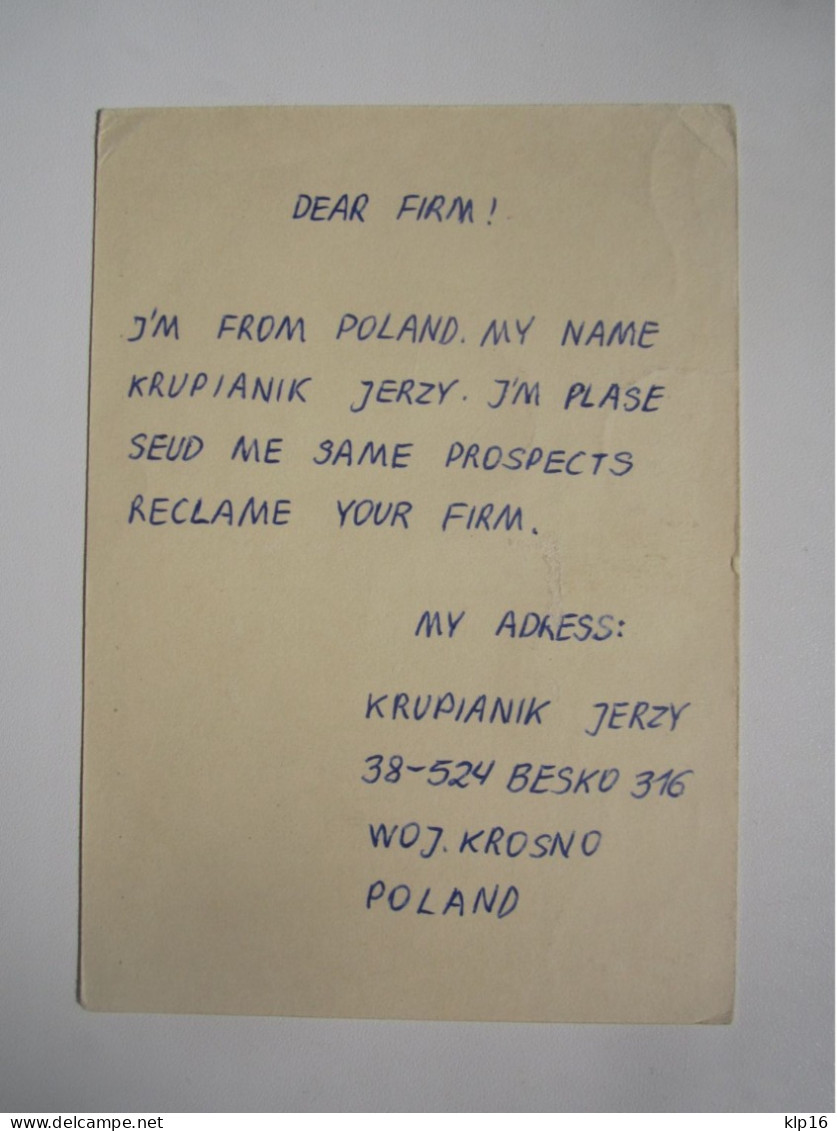 DEAR FIRM!
J'M FROM POLAND. MY NAME
KRUPIANIK JERZY. J'M PLASE
SEUD ME SAME PROSPECTS
RECLAME YOUR FIRM.
MY ADRESS:
KRUPIANIK JERZY
38-524 BESKO 316
WOJ. KROSNO
POLAND
delcampe.net
klp16